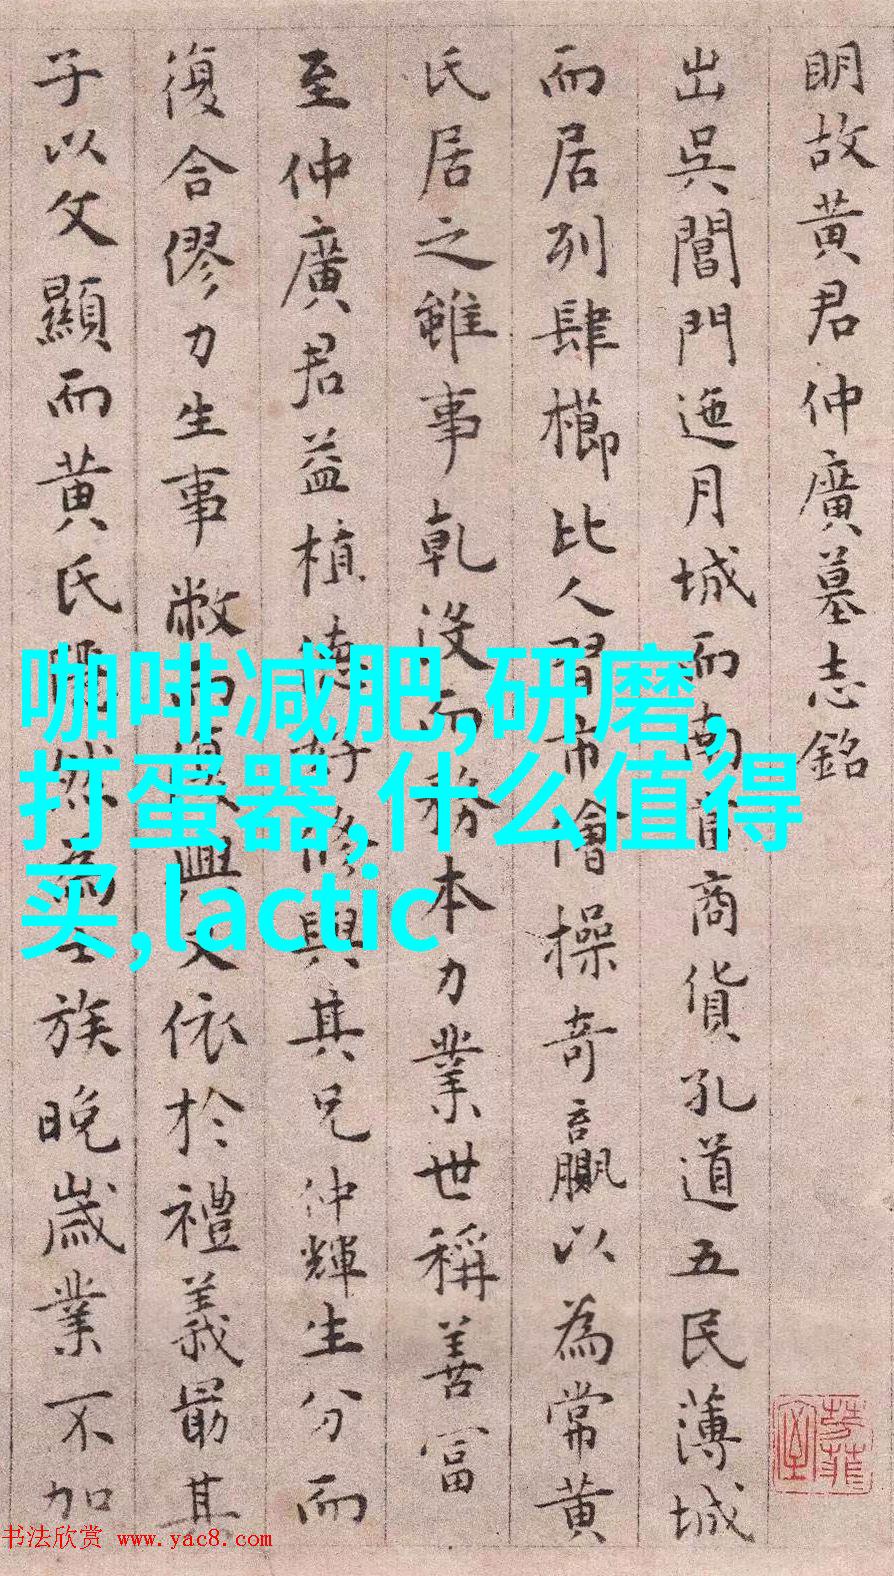 明故黄君仲廣墓志銘
出吳閶門迤月城而南皆商貨孔道五民薄城
而居列肆櫛比人習市儈操奇贏以為常黄
氏居之雖事乾没而務本力業世稱善富
至仲廣君益植德好修與其兄仲輝生分而
復合僇力生事敝而復興又依於禮義最其
子以文顯而黄氏隱然為士族晚歲業不加
咖啡减肥,研磨,
打蛋器,什么值得
买,lactic
书法欣赏 www.yac8.com